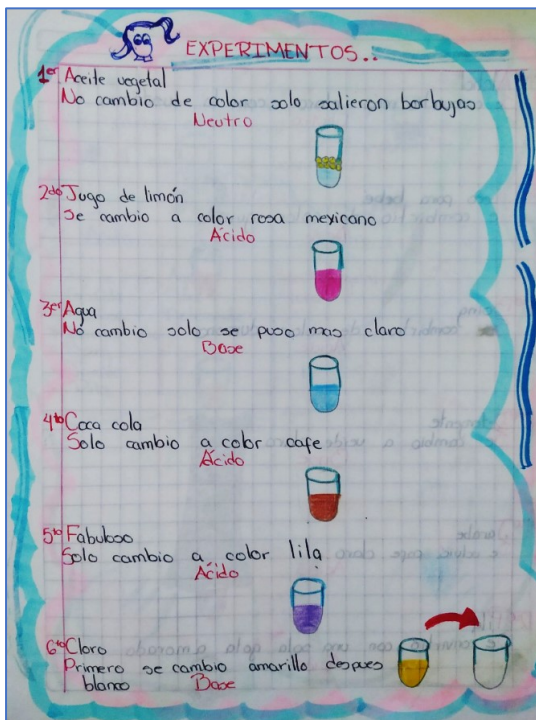 EXPERIMENTOS..
1er Aceite vegetal
No cambio de color solo salieron borbujas
Neutro
2do Jugo de limón
Se cambio a color rosa mexicano
Ácido
3er Agua
No cambio solo se puso mas claro
Base
4to Coca cola
Solo cambio a color cafe
Ácido
5to Fabuloso
Solo cambio a color lila
Ácido
6to Cloro
Primero se cambio amarillo despues
blanco Base